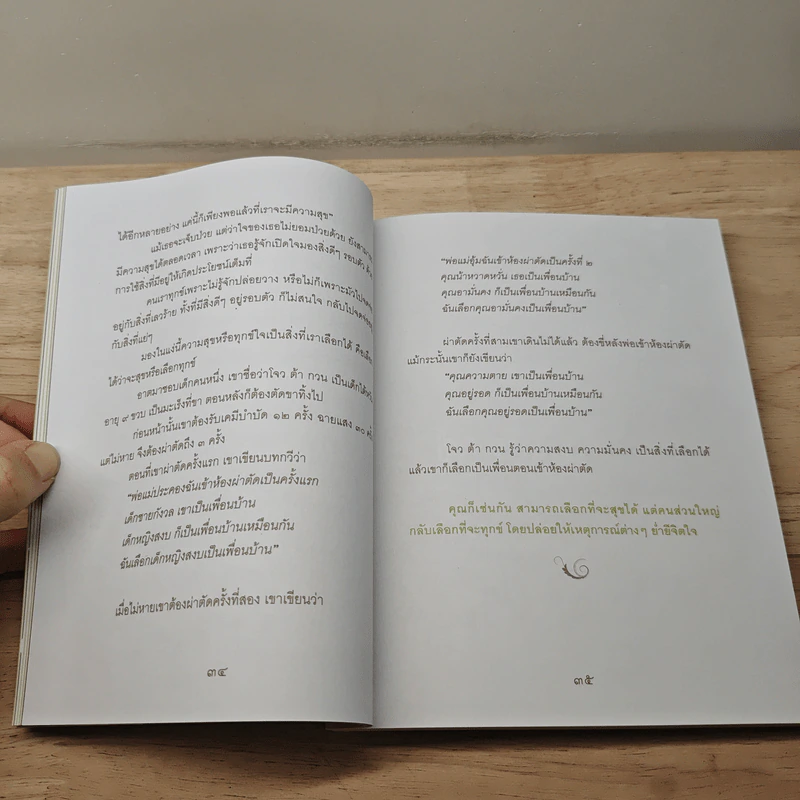 ได้อีกหลายอย่าง แค่นี้ก็เพียงพอแล้วที่เราจะมีความสุข”
แม้เธอจะเจ็บป่วย แต่ว่าใจของเธอไม่ยอมป่วยด้วย ยังสามารถ
มีความสุขได้ตลอดเวลา เพราะว่าเธอรู้จักเปิดใจมองสิ่งดีๆ รอบตัว
การใช้สิ่งที่มีอยู่ให้เกิดประโยชน์เต็มที่
คนเราทุกข์เพราะไม่รู้จักปล่อยวาง หรือไม่ก็เพราะมัวไป
อยู่กับสิ่งที่เลวร้าย ทั้งที่มีสิ่งดีๆ อยู่รอบตัว ก็ไม่สนใจ กลับไป
กับสิ่งที่แย่ๆ
มองในแง่นี้ความสุขหรือทุกข์ใจเป็นสิ่งที่เราเลือกได้
ได้ว่าจะสุขหรือเลือกทุกข์
อาตมาชอบเด็กคนหนึ่ง เขาชื่อว่าโจว ต้า กวน เป็นเด็กไต้หวัน
อายุ ๙ ขวบ เป็นมะเร็งที่ขา ตอนหลังก็ต้องตัดขาทิ้งไป
ก่อนหน้านั้นเขาต้องรับเคมีบำบัด ๑๒ ครั้ง ฉายแสง ๓๐ ครั้ง
แต่ไม่หาย จึงต้องผ่าตัดถึง ๓ ครั้ง
ตอนที่เขาผ่าตัดครั้งแรก เขาเขียนบทกวีว่า
“พ่อแม่ประคองฉันเข้าห้องผ่าตัดเป็นครั้งแรก
เด็กชายกังวล เขาเป็นเพื่อนบ้าน
เด็กหญิงสงบ ก็เป็นเพื่อนบ้านเหมือนกัน
ฉันเลือกเด็กหญิงสงบเป็นเพื่อนบ้าน”
เมื่อไม่หายเขาต้องผ่าตัดครั้งที่สอง เขาเขียนว่า
๓๔
“พ่อแม่อุ้มฉันเข้าห้องผ่าตัดเป็นครั้งที่ ๒
คุณน้าหวาดหวั่น เธอเป็นเพื่อนบ้าน
คุณอามั่นคง ก็เป็นเพื่อนบ้านเหมือนกัน
ฉันเลือกคุณอามั่นคงเป็นเพื่อนบ้าน”
ผ่าตัดครั้งที่สามเขาเดินไม่ได้แล้ว ต้องขี่หลังพ่อเข้าห้องผ่าตัด
แม้กระนั้นเขาก็ยังเขียนว่า
“คุณความตาย เขาเป็นเพื่อนบ้าน
คุณอยู่รอด ก็เป็นเพื่อนบ้านเหมือนกัน
ฉันเลือกคุณอยู่รอดเป็นเพื่อนบ้าน”
โจว ต้า กวน รู้ว่าความสงบ ความมั่นคง เป็นสิ่งที่เลือกได้
แล้วเขาก็เลือกเป็นเพื่อนตอนเข้าห้องผ่าตัด
คุณก็เช่นกัน สามารถเลือกที่จะสุขได้ แต่คนส่วนใหญ่
กลับเลือกที่จะทุกข์ โดยปล่อยให้เหตุการณ์ต่างๆ ย่ำยีจิตใจ
๓๕